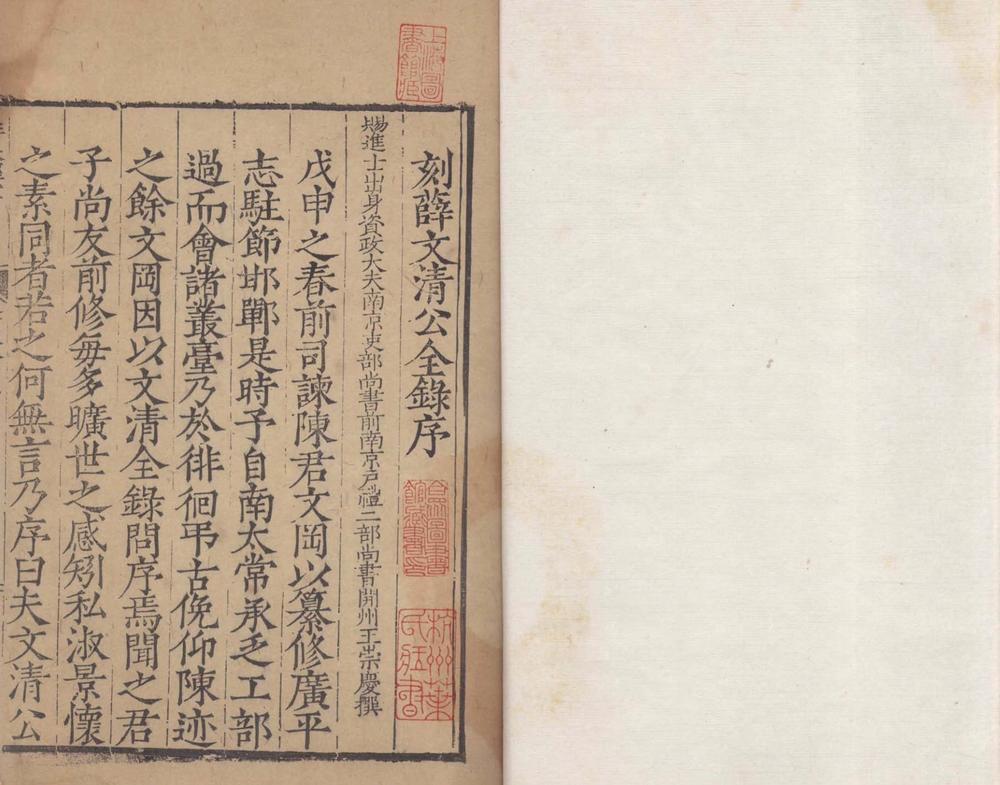 刻薛文清公全錄序
賜進士出身資政大夫南京吏部尚書前南京戶禮二部尚書開州王崇慶撰
戊申之春前司諫陳君文岡以纂修廣平
志駐節邯鄲是時予自南太常承乏工部
過而會諸叢臺乃於徘徊弔古俛仰陳迹
之餘文岡因以文清全錄問序焉聞之君
子尚友前修每多曠世之感矧私淑景懷
之素同者若之何無言乃序曰夫文清公
上海圖書館藏
合眾圖書館藏書印
杭州葉氏藏書